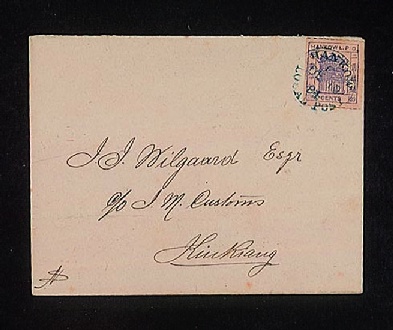 HANKOW L.P.O
CENTS
HANKOW
LOCAL POST
J. J. Wilgaard Esqr
c/o I M. Customs
Kiukiang